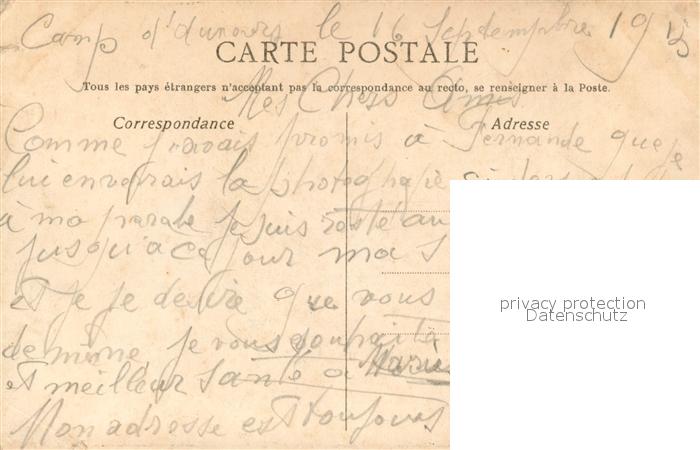 Camp d' le 16 Septembre 19
CARTE POSTALE
Tous les pays étrangers n'acceptant pas la correspondance au recto, se renseigner à la Poste.
Mes Chers Amis
Correspondance
Adresse
Comme j'avais promis à Fernande que je
lui enverrais la photographie
à ma parole je suis resté au
jusqu'a ce jour ma
et je je desire que vous
de même je vous souhaite
et meilleur santé a Marie
Mon adresse est toujours
privacy protection
Datenschutz